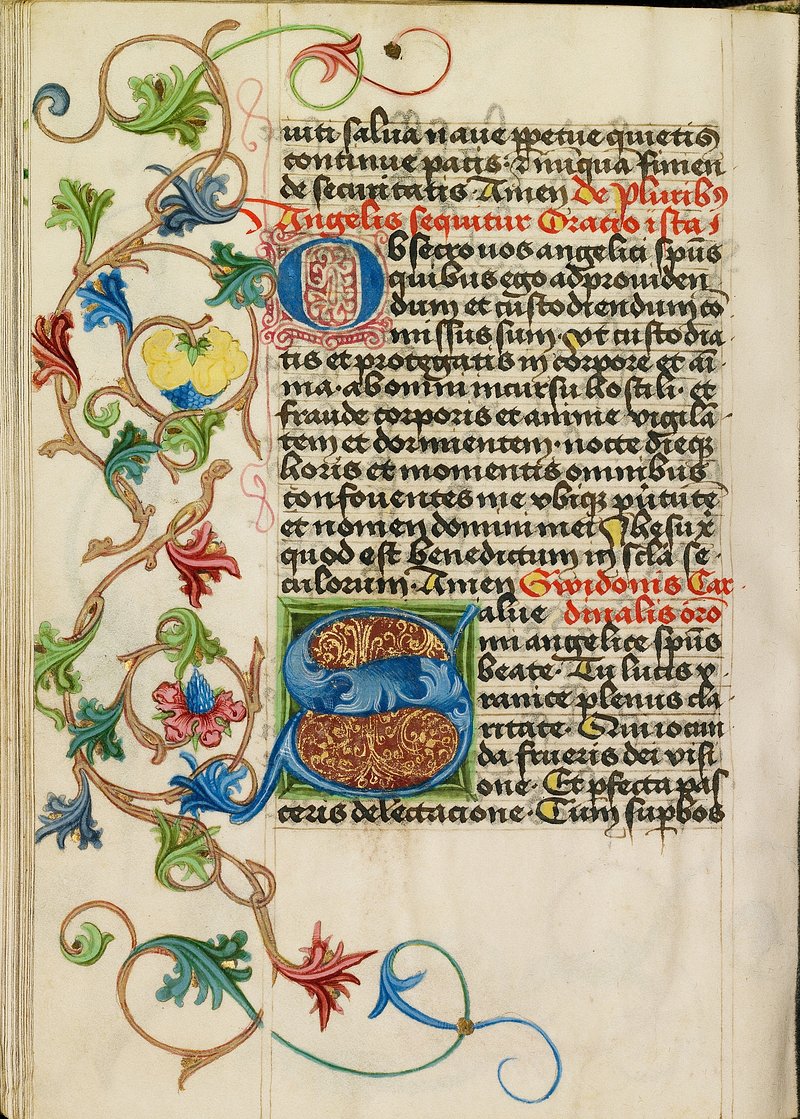 uiti salua naue ppetue quietis
continue pacis: Amen
de securitatis. Amen de Pluribus
Angelis sequitur Oracio ista
Obsecro uos angelici spūs
quibus ego ad prouiden
dum et custodiendum cō
missus sum. vt custodia
tis et protegatis in corpore et aī
ma. ab omni incursu hostili. et
fraude corporis et anime vigilā
tem et dormientem. nocte dieq3
horis et momentis omnibus
confouentes me vbiq3 virtute
et nomen domini mei Jhesu x
quod est benedictum in scla se
culorum. Amen Gwidonis Car
Salue dinalis orō
mi angelice spūs
beate. Tu lucis
ranice plenus cla
ritate. Qui iocun
da frueris dei visi
one. Et pfecta pas
ceris delectacione. Tum supbos